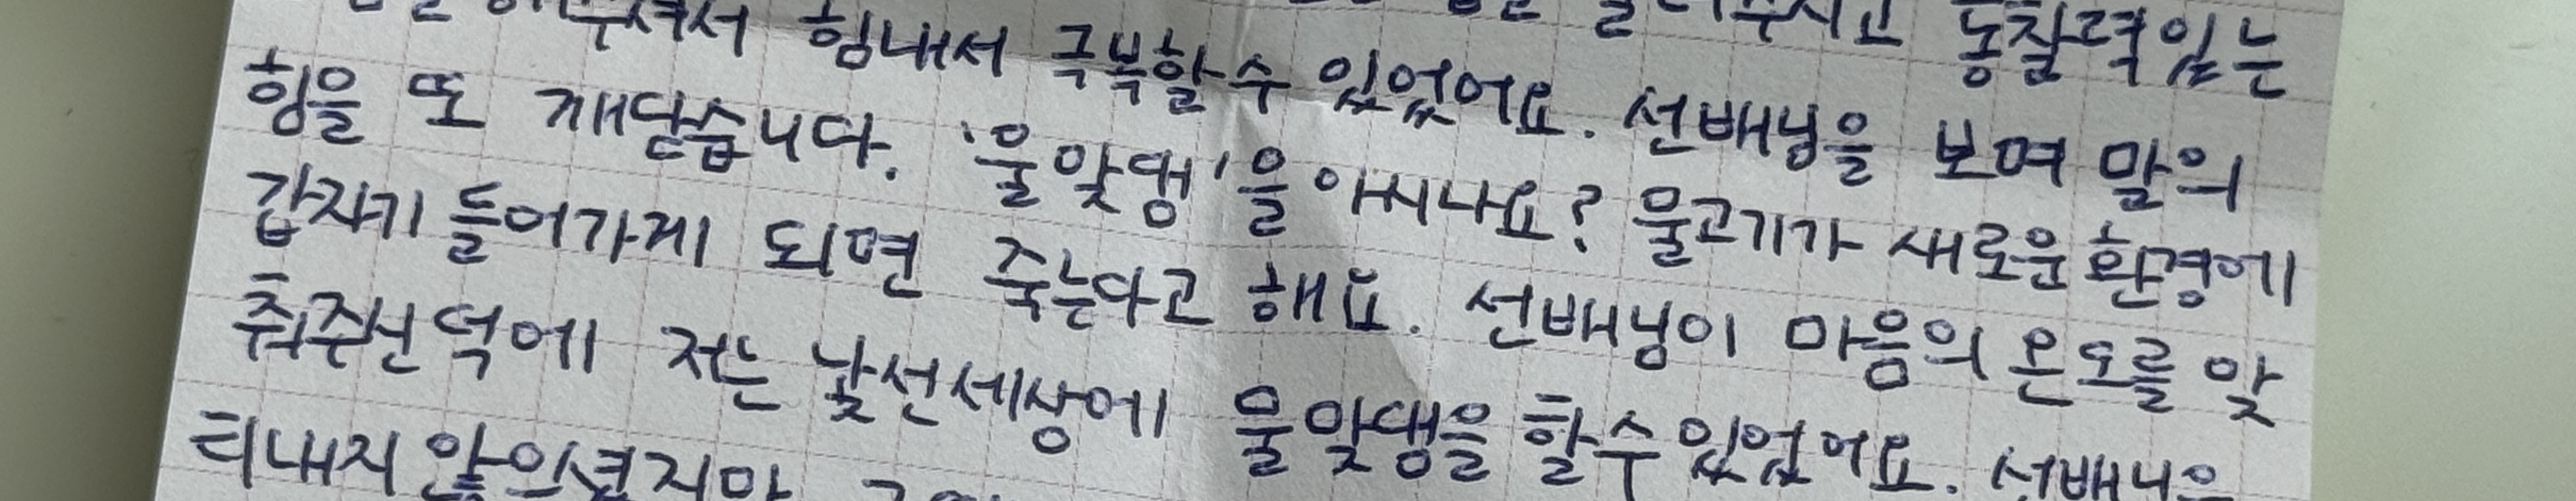 통찰력있는
힘내서 극복할 수 있었어요. 선배님을 보며 말의
힘을 또 깨닫습니다. '물맞댐'을 아시나요? 물고기가 새로운 환경에
갑자기 들어가게 되면 죽는다고 해요. 선배님이 마음의 온도를 맞
춰주신 덕에 저는 낯선 세상에 물맞댐을 할 수 있었어요. 선배님은
티내지 않으셨지만